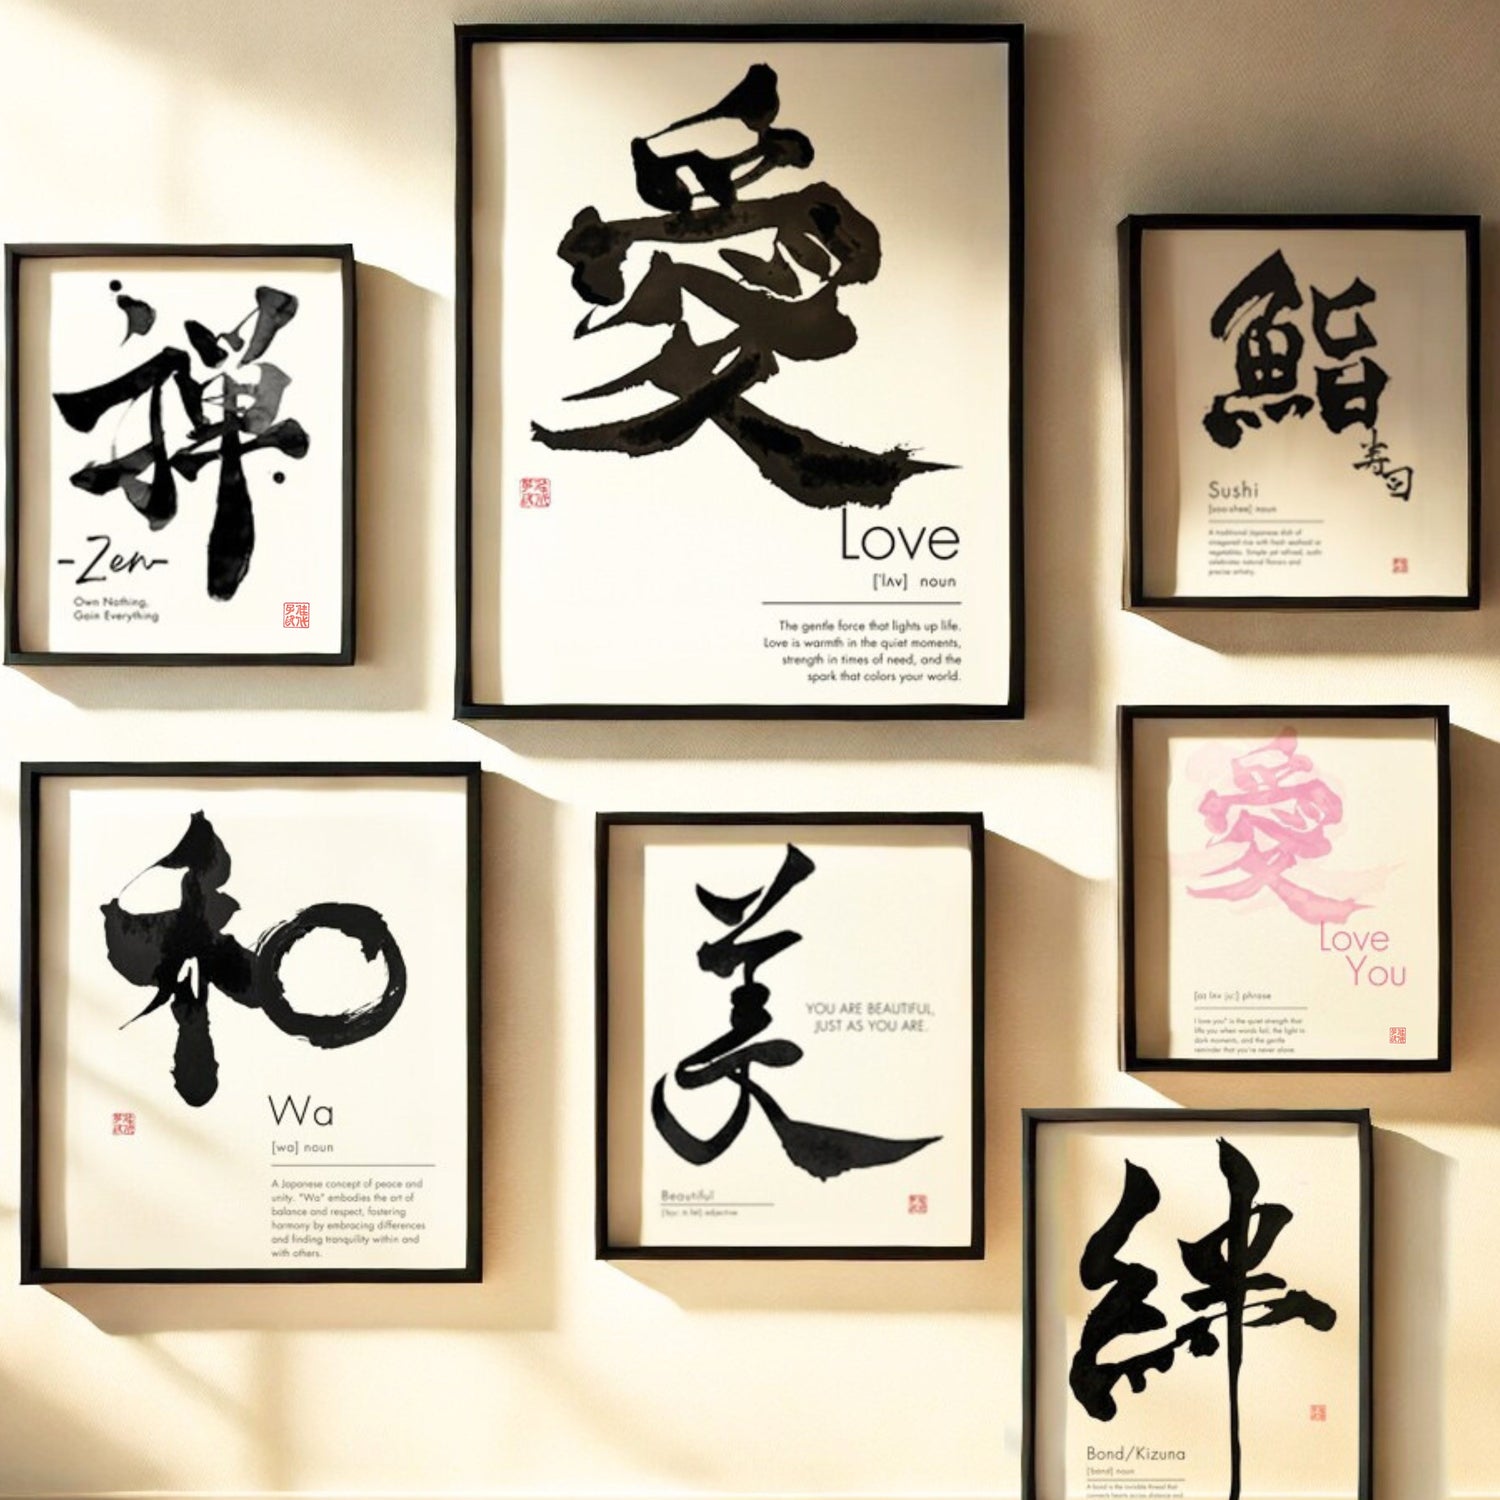 禅
-Zen-
Own Nothing,
Gain Everything
愛
Love
['lʌv] noun
The gentle force that lights up life.
Love is warmth in the quiet moments,
strength in times of need, and the
spark that colors your world.
鮨
寿司
Sushi
[soo-shee] noun
A traditional Japanese dish of
vinegared rice with fresh seafood or
vegetables. Simple yet refined, sushi
celebrates natural flavors and
precise artistry.
和
Wa
[wa] noun
A Japanese concept of peace and
unity. "Wa" embodies the art of
balance and respect, fostering
harmony by embracing differences
and finding tranquility within and
with others.
美
YOU ARE BEAUTIFUL,
JUST AS YOU ARE.
Beautiful
adjective
愛
Love
You
phrase
I love you" is the quiet strength that
lifts you when words fail, the light in
dark moments, and the gentle
reminder that you're never alone.
絆
Bond/Kizuna
[bɒnd] noun
A bond is the invisible thread that
connects hearts across distance and